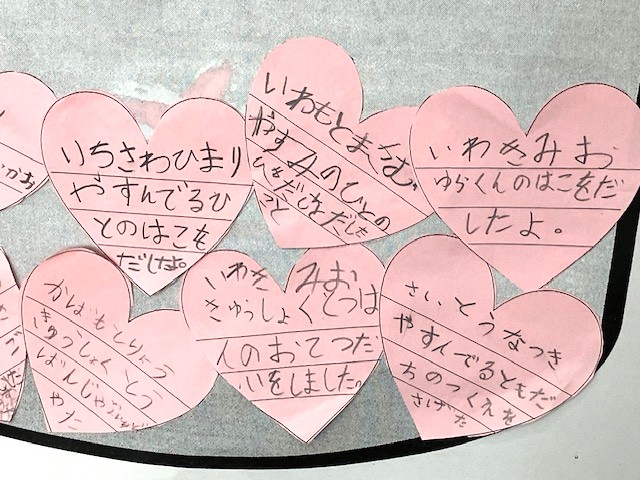 いちさわひまり
やすんでるひ
とのはこも
だしたよ。
いわもと
やすみのひとの
いわきみお
ゆらくんのはこをだ
したよ。
かばもとりょう
きゅうしょくとう
ばんじゃ
やた
いわきみお
きゅうしょくとうば
んのおてつだ
いをしました。
さいとうなつき
やすんでるともだ
ちのつくえを
さげた